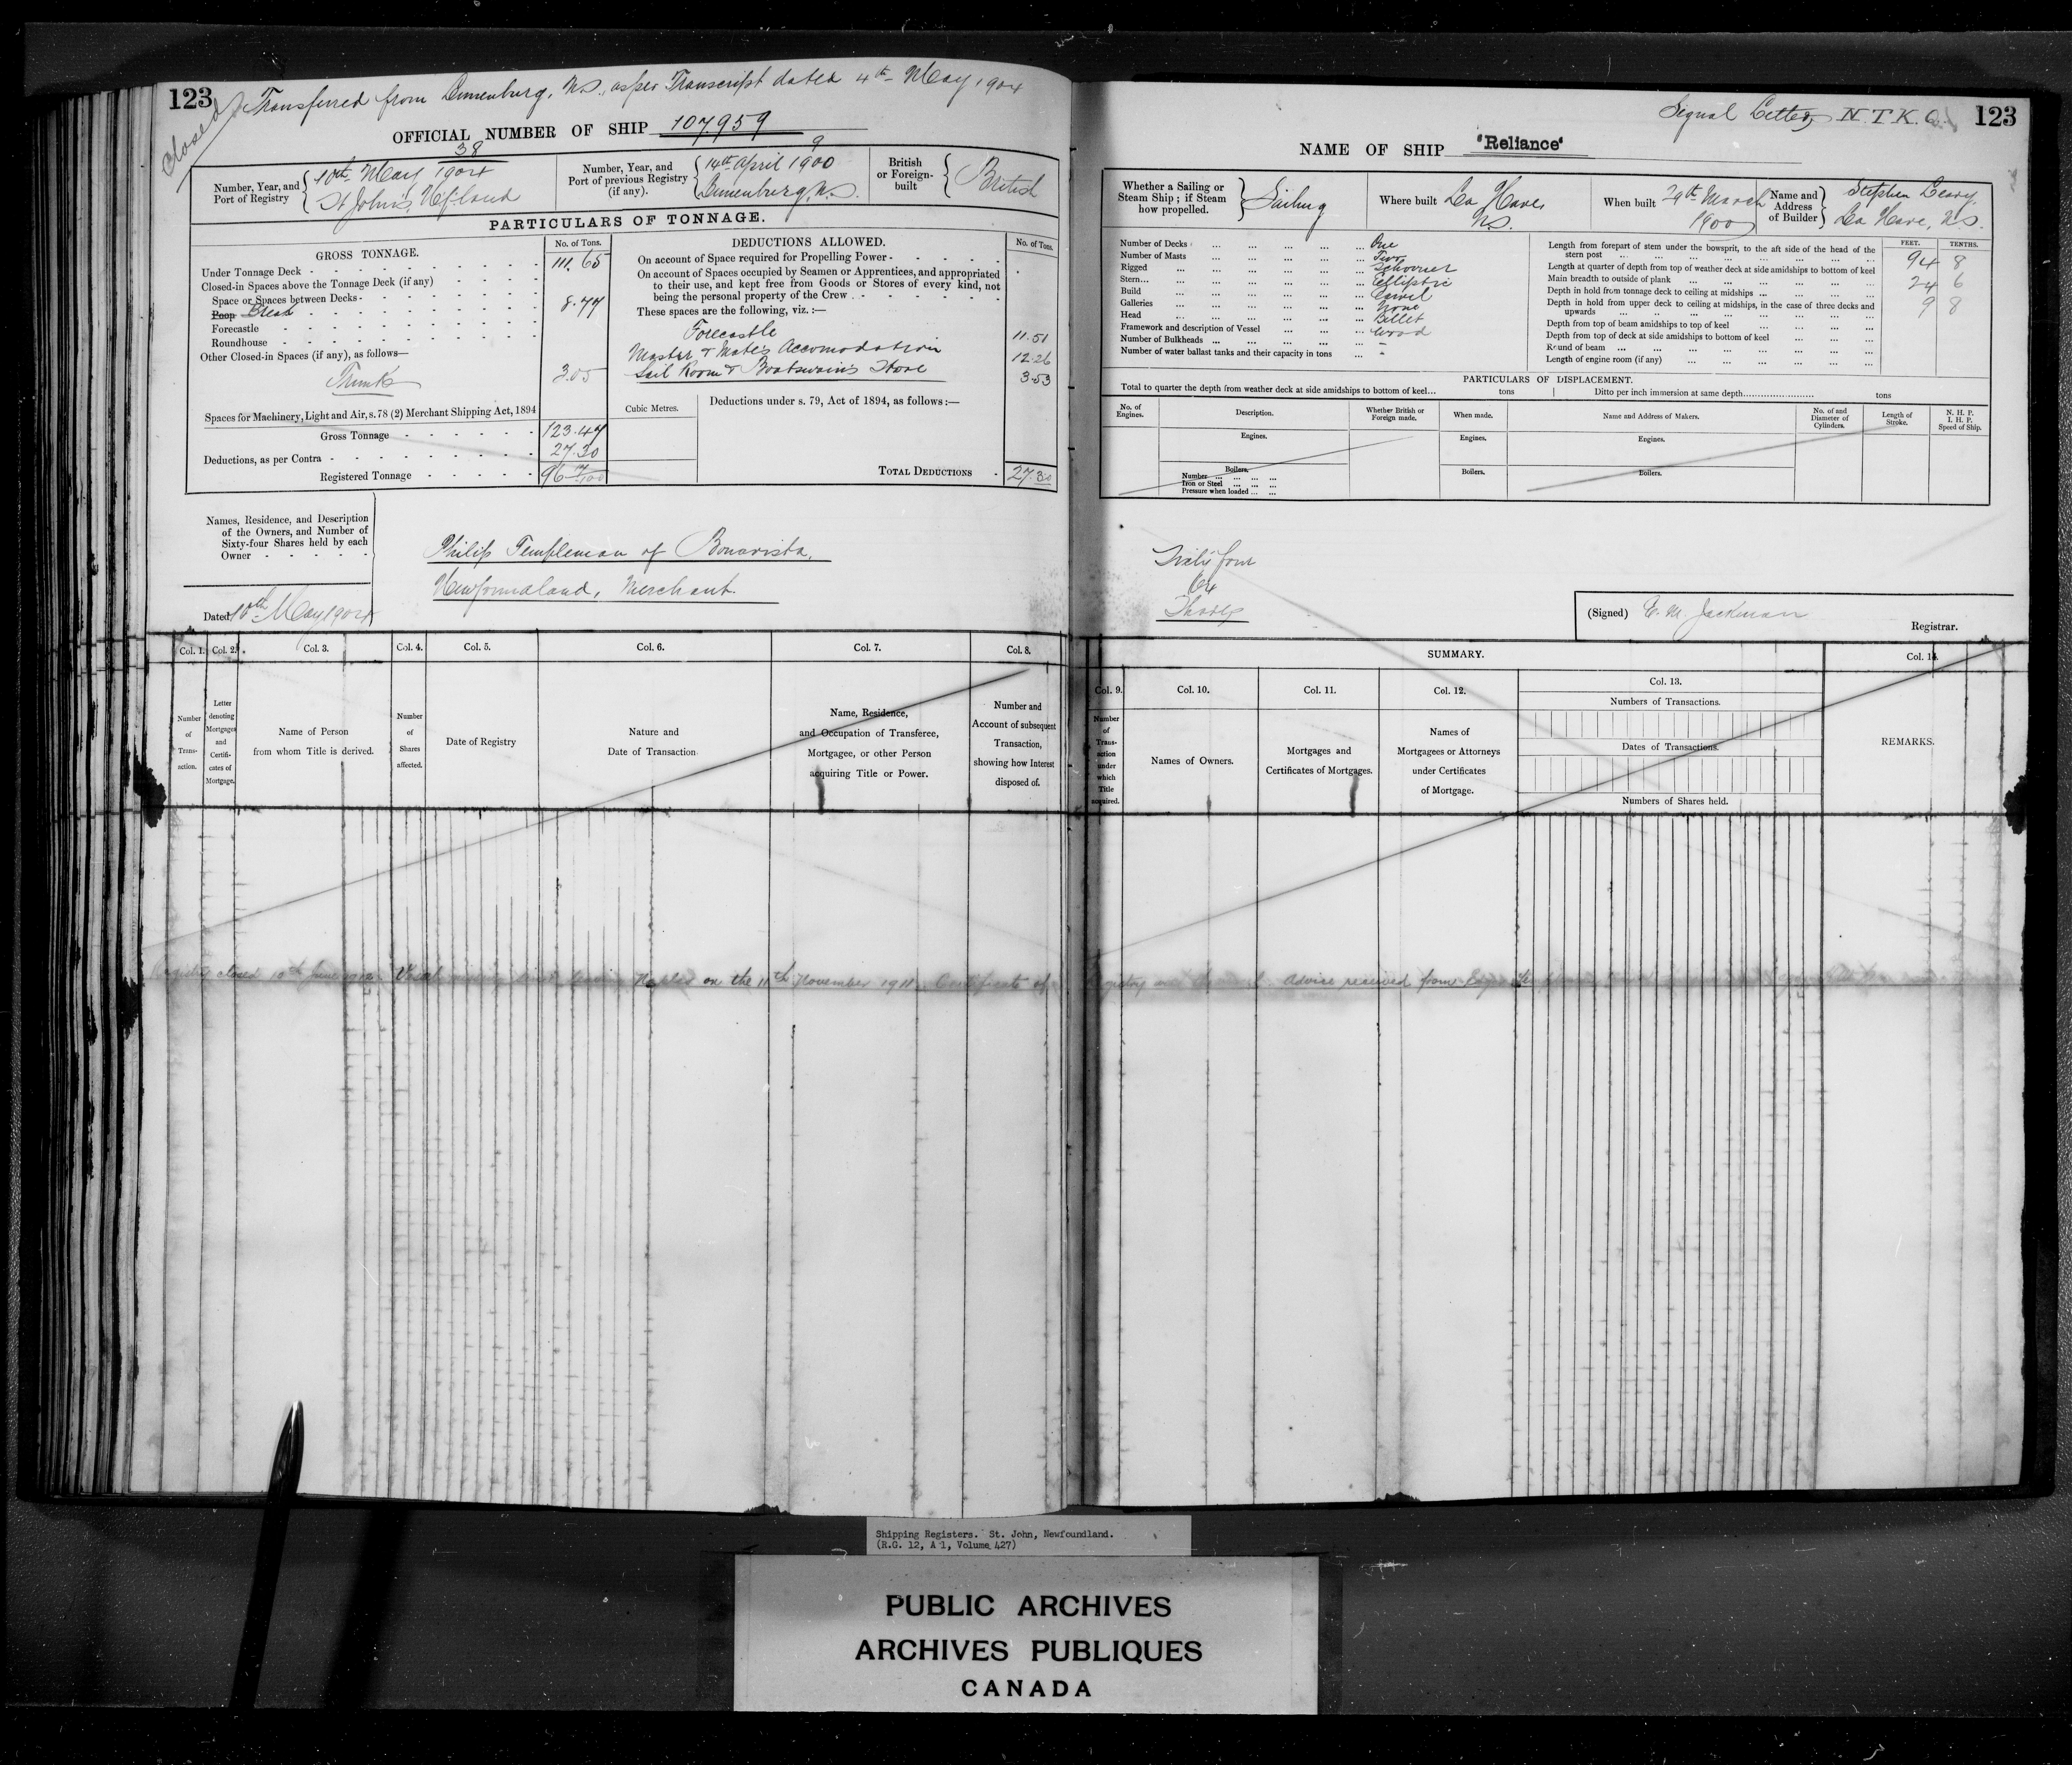 123
Closed
Transferred from Lunenburg, N.S. as per Transcript dated 4th May 1904
OFFICIAL NUMBER OF SHIP 107,959
Number, Year, and Port of Registry
38
10th May 1904
St John's, Nfland
Number, Year, and Port of previous Registry (if any).
9
14th April 1900
Lunenburg, N.S.
British or Foreign-built
British
PARTICULARS OF TONNAGE.
GROSS TONNAGE. No. of Tons.
Under Tonnage Deck 111.65
Closed-in Spaces above the Tonnage Deck (if any)
Space or Spaces between Decks
Poop Break 8.77
Forecastle
Roundhouse
Other Closed-in Spaces (if any), as follows—
Trunk 3.05
Spaces for Machinery, Light and Air, s. 78 (2) Merchant Shipping Act, 1894
Gross Tonnage 123.47
Deductions, as per Contra 27.30
Registered Tonnage 96 17/100
DEDUCTIONS ALLOWED. No. of Tons.
On account of Space required for Propelling Power
On account of Spaces occupied by Seamen or Apprentices, and appropriated
to their use, and kept free from Goods or Stores of every kind, not
being the personal property of the Crew
These spaces are the following, viz. :—
Forecastle 11.51
Master & Mate's Accomodation 12.26
Sail Room & Boatswain's Store 3.53
Cubic Metres.
Deductions under s. 79, Act of 1894, as follows :—
TOTAL DEDUCTIONS 27.30
Names, Residence, and Description
of the Owners, and Number of
Sixty-four Shares held by each
Owner
Philip Templeman of Bonavista,
Newfoundland, Merchant.
Dated 10th May 1904
Col. 1. Col. 2. Col. 3. Col. 4. Col. 5. Col. 6. Col. 7. Col. 8.
Number of Transaction.
Letter denoting Mortgages and Certificates of Mortgage.
Name of Person from whom Title is derived.
Number of Shares affected.
Date of Registry
Nature and Date of Transaction.
Name, Residence, and Occupation of Transferee, Mortgagee, or other Person acquiring Title or Power.
Number and Account of subsequent Transaction, showing how Interest disposed of.
Signal Letters, N.T.K.
123
NAME OF SHIP "Reliance"
Whether a Sailing or Steam Ship ; if Steam how propelled.
Sailing
Where built La Have N.S.
When built 29th March 1900
Name and Address of Builder
Stephen Leary,
La Have, N.S.
Number of Decks One
Number of Masts Two
Rigged Schooner
Stern Elliptic
Build Carvel
Galleries None
Head Billet
Framework and description of Vessel Wood
Number of Bulkheads -
Number of water ballast tanks and their capacity in tons -
FEET. TENTHS.
Length from forepart of stem under the bowsprit, to the aft side of the head of the
stern post 94 8
Length at quarter of depth from top of weather deck at side amidships to bottom of keel
Main breadth to outside of plank 24 6
Depth in hold from tonnage deck to ceiling at midships 9 8
Depth in hold from upper deck to ceiling at midships, in the case of three decks and
upwards
Depth from top of beam amidships to top of keel
Depth from top of deck at side amidships to bottom of keel
Round of beam
Length of engine room (if any)
PARTICULARS OF DISPLACEMENT.
Total to quarter the depth from weather deck at side amidships to bottom of keel tons Ditto per inch immersion at same depth tons
No. of Engines.
Description.
Whether British or Foreign made.
When made.
Name and Address of Makers.
No. of and Diameter of Cylinders.
Length of Stroke.
N. H. P.
I. H. P.
Speed of Ship.
Engines. Engines. Engines.
Boilers. Boilers. Boilers.
Number
Iron or Steel
Pressure when loaded
Sixty four
64
Shares
(Signed) E. M. Jackman
Registrar.
SUMMARY.
Col. 9. Col. 10. Col. 11. Col. 12. Col. 13. Col. 14.
Number of Transaction under which Title acquired.
Names of Owners.
Mortgages and Certificates of Mortgages.
Names of Mortgagees or Attorneys under Certificates of Mortgage.
Numbers of Transactions.
Dates of Transactions.
Numbers of Shares held.
REMARKS.
Registry closed 10th June 1912. Vessel missing since leaving Naples on the 11th November 1911. Certificate of Registry Advice received from
Shipping Registers. St. John, Newfoundland.
(R.G. 12, A 1, Volume 427)
PUBLIC ARCHIVES
ARCHIVES PUBLIQUES
CANADA